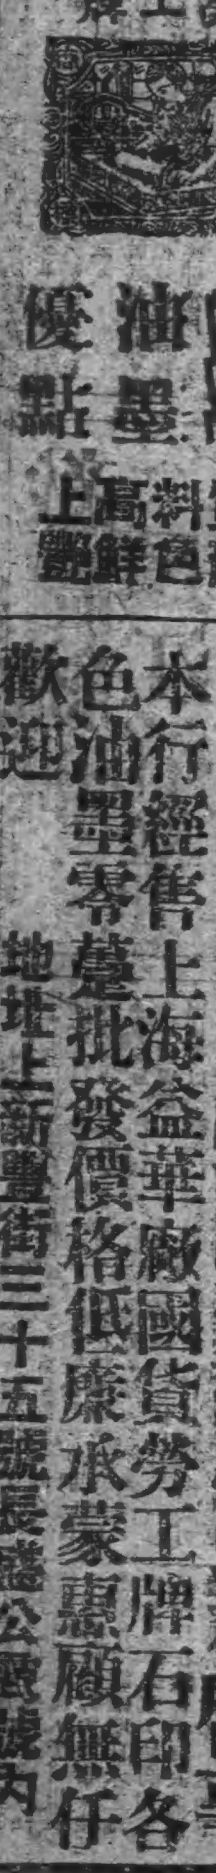 油墨
優點
料色
高鮮
上艷
本行經售上海益華廠國貨勞工牌石印各
色油墨零躉批發價格低廉承蒙惠顧無任
歡迎
地址上新豐街三十五號長盛公